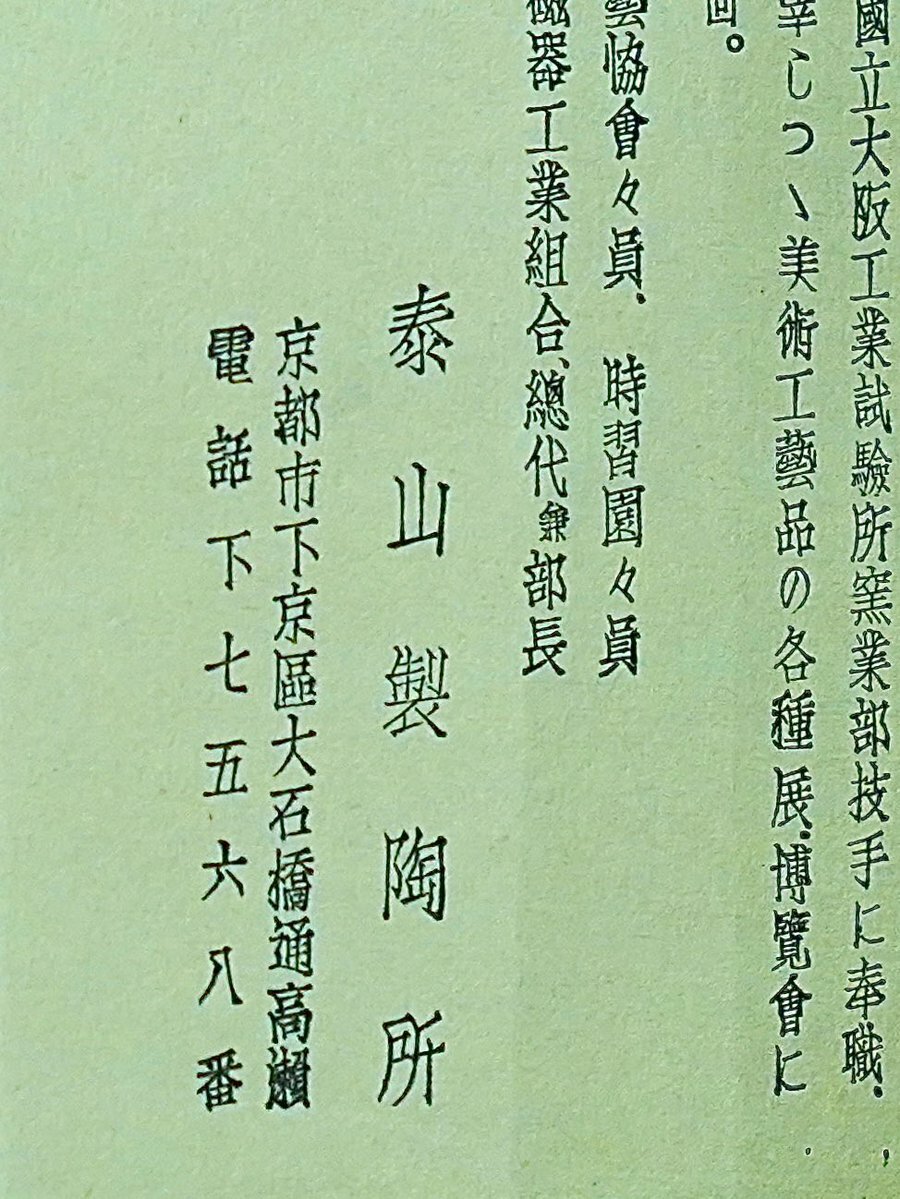 國立大阪工業試驗所窯業部技手に奉職、
宰しつゝ美術工藝品の各種展、博覽會に
回。
藝協會々員、 時習園々員
磁器工業組合、總代兼部長
泰山製陶所
京都市下京區大石橋通高瀨
電話下七五六八番